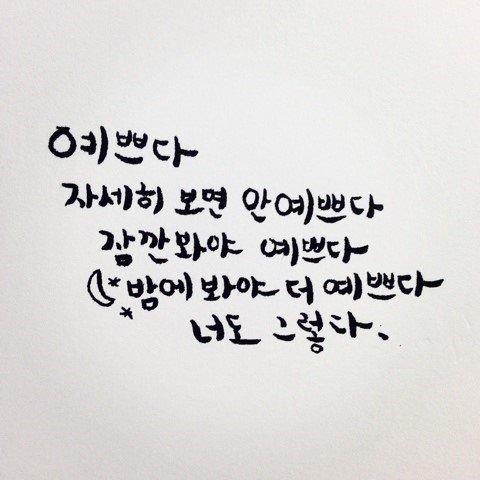 예쁘다
자세히 보면 안예쁘다
잠깐봐야 예쁘다
밤에 봐야 더 예쁘다
너도 그렇다.